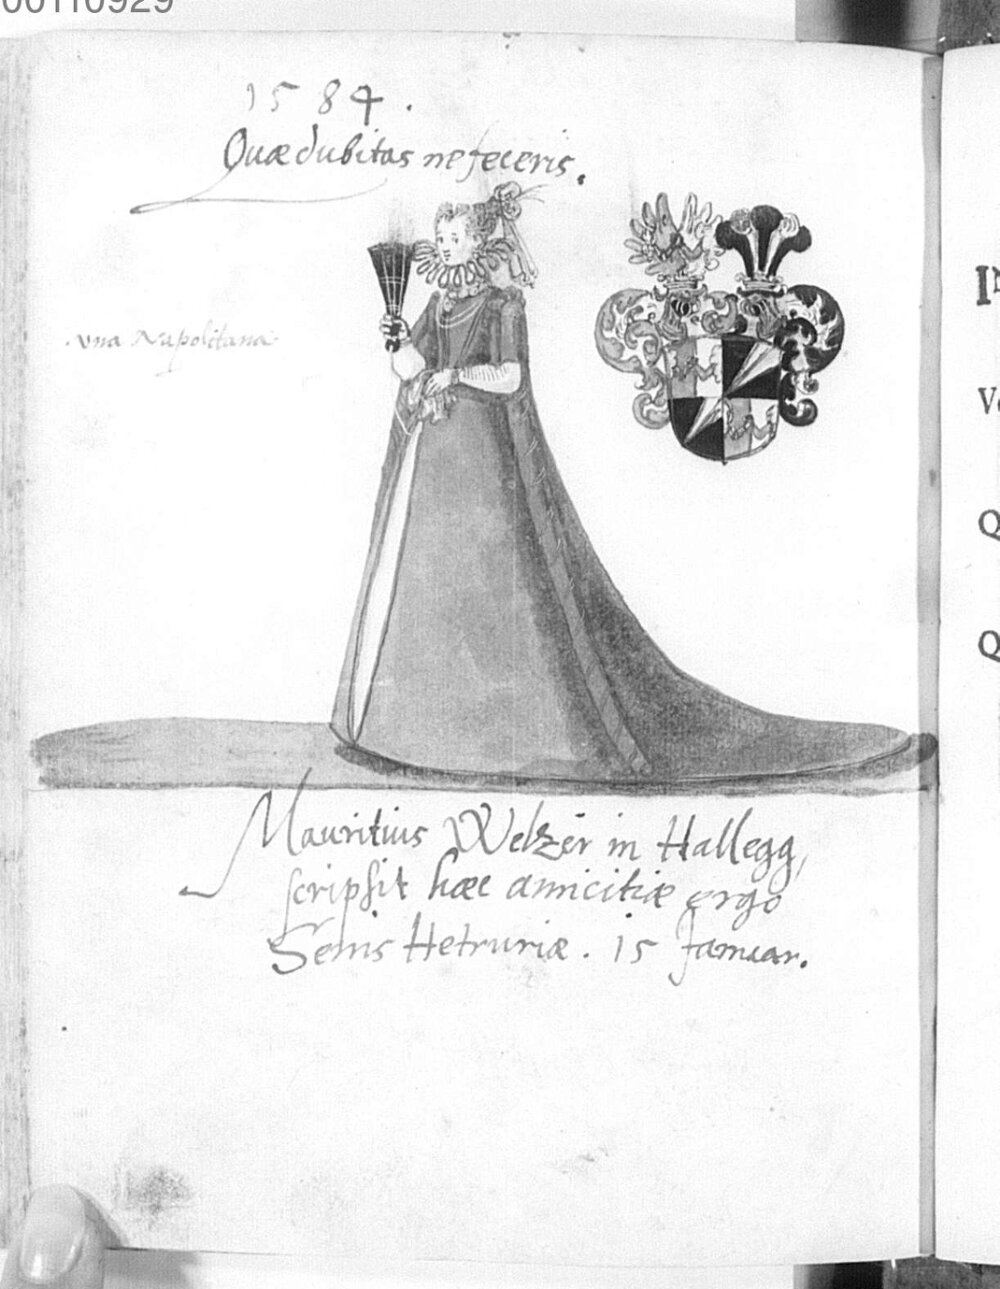 00110929
1584.
Quæ dubitas ne feceris.
Vna Napolitana
Mauritius Welzer in Hallegg,
scripsit hæc amicitiæ ergo
Senis Hetruriæ. 15 Januar.
Q
Q